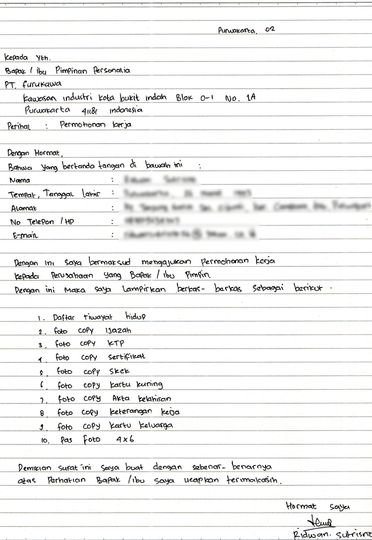 Purwakarta, 02
Kepada Yth.
Bapak / Ibu Pimpinan Personalia
PT. Furukawa
Kawasan industri kota bukit indah Blok D-1 No. 1A
Purwakarta 41181 Indonesia
Perihal : Permohonan kerja
Dengan Hormat,
Bahwa yang bertanda tangan di bawah ini :
Nama :
Tempat, Tanggal Lahir :
Alamat :
No Telepon / HP :
E-mail :
Dengan ini saya bermaksud mengajukan Permohonan kerja
kepada Perusahaan yang Bapak / Ibu Pimpin.
Dengan ini Maka saya lampirkan berkas-barkas sebagai berikut.
1. Daftar riwayat hidup
2. foto copy Ijazah
3. foto copy KTP
4. foto copy sertifikat
5. foto copy skck
6. foto copy kartu kuning
7. foto copy Akta kelahiran
8. foto copy keterangan kerja
9. foto copy kartu keluarga
10. Pas foto 4x6
Demikian surat ini saya buat dengan sebenar-benarnya
atas Perhatian Bapak / Ibu saya ucapkan terimakasih.
Hormat saya
Ridwan Sutrisno